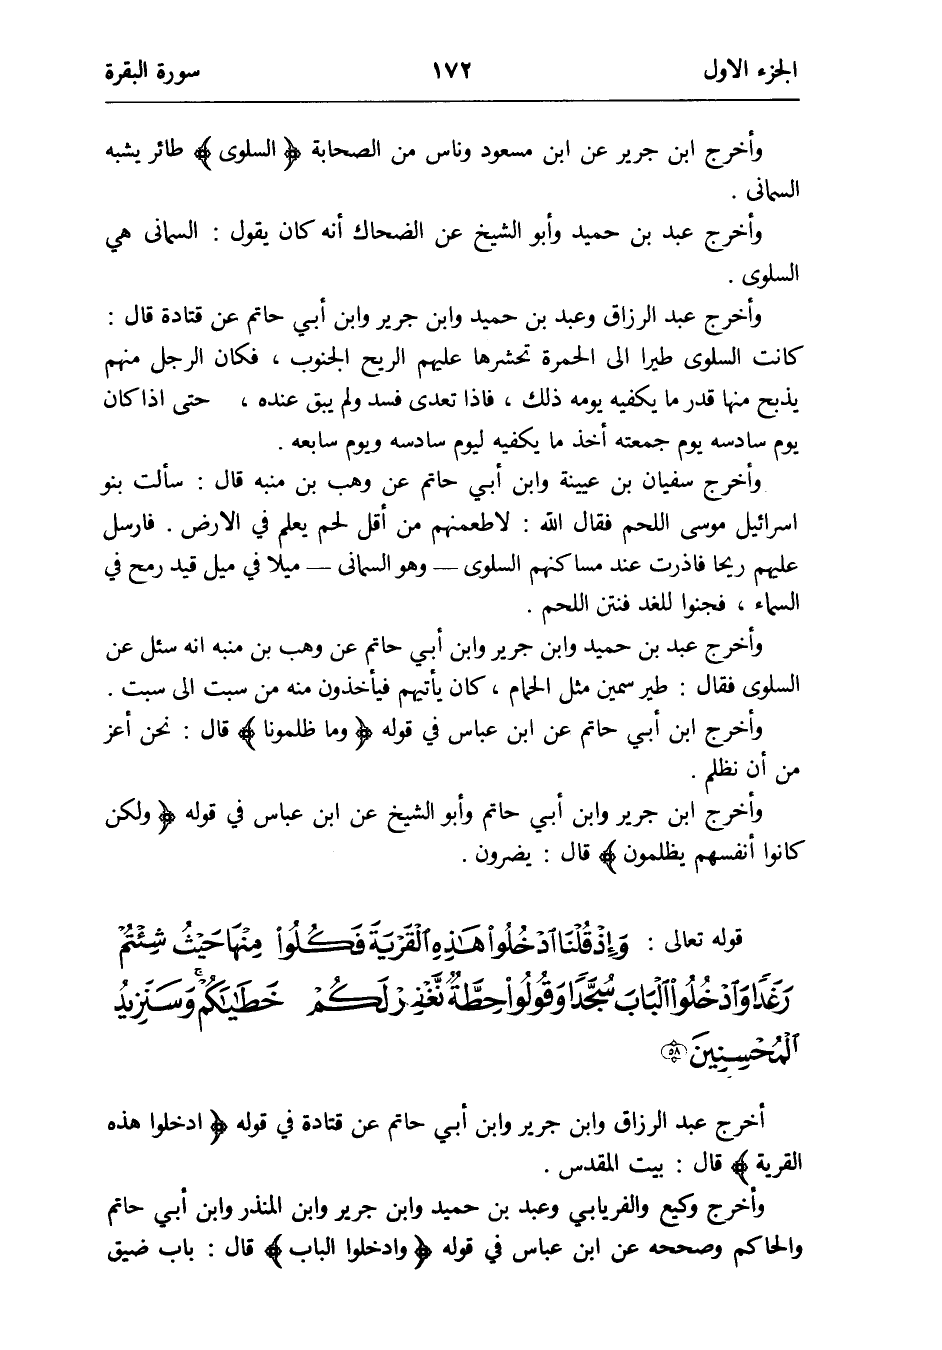 الجزء الاول ١٧٢ سورة البقرة
وأخرج ابن جرير عن ابن مسعود وناس من الصحابة ﴿ السلوى ﴾ طائر يشبه
السمانى .
وأخرج عبد بن حميد وأبو الشيخ عن الضحاك أنه كان يقول : السمانى هي
السلوى .
وأخرج عبد الرزاق وعبد بن حميد وابن جرير وابن أبي حاتم عن قتادة قال :
كانت السلوى طيرا الى الحمرة تحشرها عليهم الريح الجنوب ، فكان الرجل منهم
يذبح منها قدر ما يكفيه يومه ذلك ، فاذا تعدى فسد ولم يبق عنده ، حتى اذا كان
يوم سادسه يوم جمعته أخذ ما يكفيه ليوم سادسه ويوم سابعه .
وأخرج سفيان بن عيينة وابن أبي حاتم عن وهب بن منبه قال : سألت بنو
اسرائيل موسى اللحم فقال الله : لاطعمنهم من أقل لحم يعلم في الارض . فارسل
عليهم ريحا فاذرت عند مساكنهم السلوى — وهو السمانى — ميلا في ميل قيد رمح في
السماء ، فجنوا للغد فنتن اللحم .
وأخرج عبد بن حميد وابن جرير وابن أبي حاتم عن وهب بن منبه انه سئل عن
السلوى فقال : طير سمين مثل الحمام ، كان يأتيهم فيأخذون منه من سبت الى سبت .
وأخرج ابن أبي حاتم عن ابن عباس في قوله ﴿ وما ظلمونا ﴾ قال : نحن أعز
من أن نظلم .
وأخرج ابن جرير وابن أبي حاتم وأبو الشيخ عن ابن عباس في قوله ﴿ ولكن
كانوا أنفسهم يظلمون ﴾ قال : يضرون .
قوله تعالى : وَإِذْ قُلْنَا ٱدْخُلُوا۟ هَٰذِهِ ٱلْقَرْيَةَ فَكُلُوا۟ مِنْهَا حَيْثُ شِئْتُمْ
رَغَدًا وَٱدْخُلُوا۟ ٱلْبَابَ سُجَّدًا وَقُولُوا۟ حِطَّةٌ نَّغْفِرْ لَكُمْ خَطَٰيَٰكُمْ ۚ وَسَنَزِيدُ
ٱلْمُحْسِنِينَ ٥٨
أخرج عبد الرزاق وابن جرير وابن أبي حاتم عن قتادة في قوله ﴿ ادخلوا هذه
القرية ﴾ قال : بيت المقدس .
وأخرج وكيع والفريابي وعبد بن حميد وابن جرير وابن المنذر وابن أبي حاتم
والحاكم وصححه عن ابن عباس في قوله ﴿ وادخلوا الباب ﴾ قال : باب ضيق